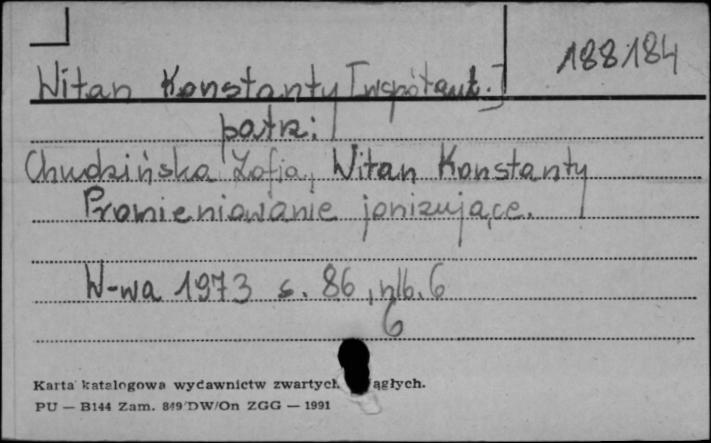 188184
Witan Konstanty [współaut.]
patrz:
Chudzińska Zofia, Witan Konstanty
Promieniowanie jonizujące.
W-wa 1973 s. 86, nlb. 6
6
Karta katalogowa wydawnictw zwartych ągłych.
PU — B144 Zam. 849/DW/On ZGG — 1991